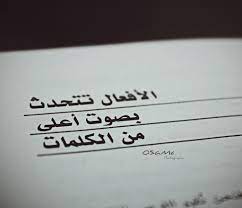 الأفعال تتحدث
بصوت أعلى
من الكلمات
OSaMa